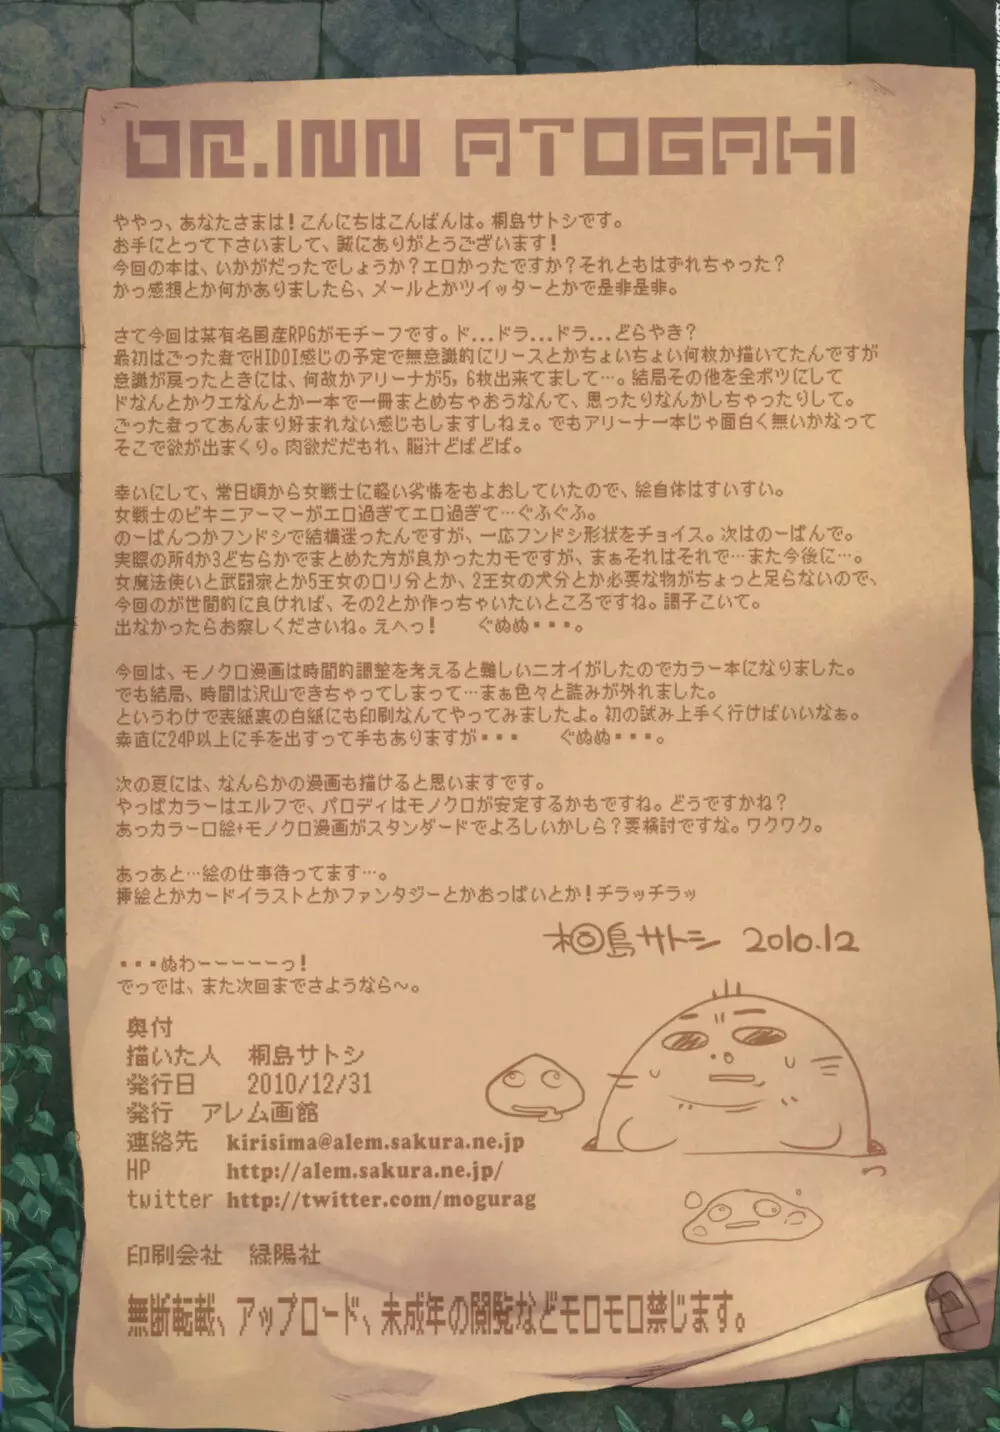 DR.INN ATOGAKI
ややっ、あなたさまは!こんにちはこんばんは。桐島サトシです。
お手にとって下さいまして、誠にありがとうございます!
今回の本は、いかがだったでしょうか?エロかったですか?それともはずれちゃった?
かっ感想とか何かありましたら、メールとかツイッターとかで是非是非。
さて今回は某有名国産RPGがモチーフです。ド...ドラ...ドラ...どらやき?
最初はごった煮でHIDOI感じの予定で無意識的にリースとかちょいちょい何枚か描いてたんですが
意識が戻ったときには、何故かアリーナが5,6枚出来てまして…。結局その他を全ボツにして
ドなんとかクエなんとか一本で一冊まとめちゃおうなんて、思ったりなんかしちゃったりして。
ごった煮ってあんまり好まれない感じもしますしねぇ。でもアリーナ一本じゃ面白く無いかなって
そこで欲が出まくり。肉欲だだもれ、脳汁どばどば。
幸いにして、常日頃から女戦士に軽い劣情をもよおしていたので、絵自体はすいすい。
女戦士のビキニアーマーがエロ過ぎてエロ過ぎて…ぐふぐふ。
のーぱんつかフンドシで結構迷ったんですが、一応フンドシ形状をチョイス。次はのーぱんで。
実際の所4か3どちらかでまとめた方が良かったカモですが、まぁそれはそれで…また今後に…。
女魔法使いと武闘家とか5王女のロリ分とか、2王女の犬分とか必要な物がちょっと足らないので、
今回のが世間的に良ければ、その2とか作っちゃいたいところですね。調子こいて。
出なかったらお察しくださいね。えへっ! ぐぬぬ・・・。
今回は、モノクロ漫画は時間的調整を考えると難しいニオイがしたのでカラー本になりました。
でも結局、時間は沢山できちゃってしまって…まぁ色々と読みが外れました。
というわけで表紙裏の白紙にも印刷なんてやってみましたよ。初の試み上手く行けばいいなぁ。
素直に24P以上に手を出すって手もありますが・・・ ぐぬぬ・・・。
次の夏には、なんらかの漫画も描けると思いますです。
やっぱカラーはエルフで、パロディはモノクロが安定するかもですね。どうですかね?
あっカラー口絵+モノクロ漫画がスタンダードでよろしいかしら?要検討ですな。ワクワク。
あっあと…絵の仕事待ってます…。
挿絵とかカードイラストとかファンタジーとかおっぱいとか!チラッチラッ
桐島サトシ 2010.12
・・・ぬわーーーーーっ!
でっでは、また次回までさようなら~。
奥付
描いた人 桐島サトシ
発行日 2010/12/31
発行 アレム画館
連絡先 kirisima@alem.sakura.ne.jp
HP http://alem.sakura.ne.jp/
twitter http://twitter.com/mogurag
印刷会社 緑陽社
無断転載、アップロード、未成年の閲覧などモロモロ禁じます。